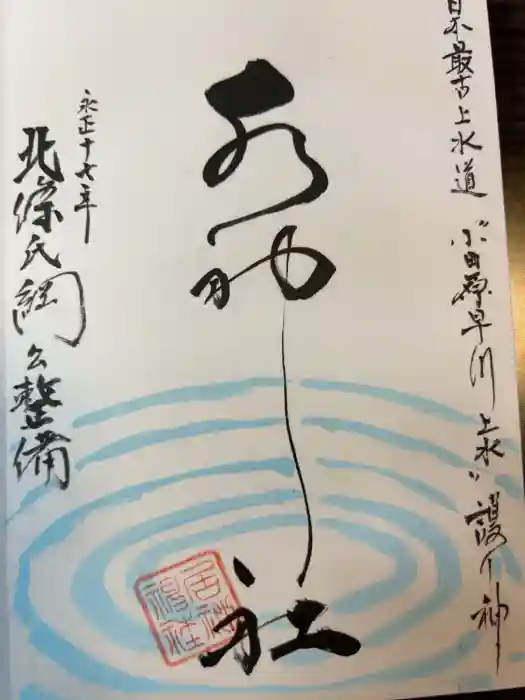 日本最古上水道 "小田原早川上水" 護り神
水神社
永正十七年
北條氏綱公整備
居神
神社